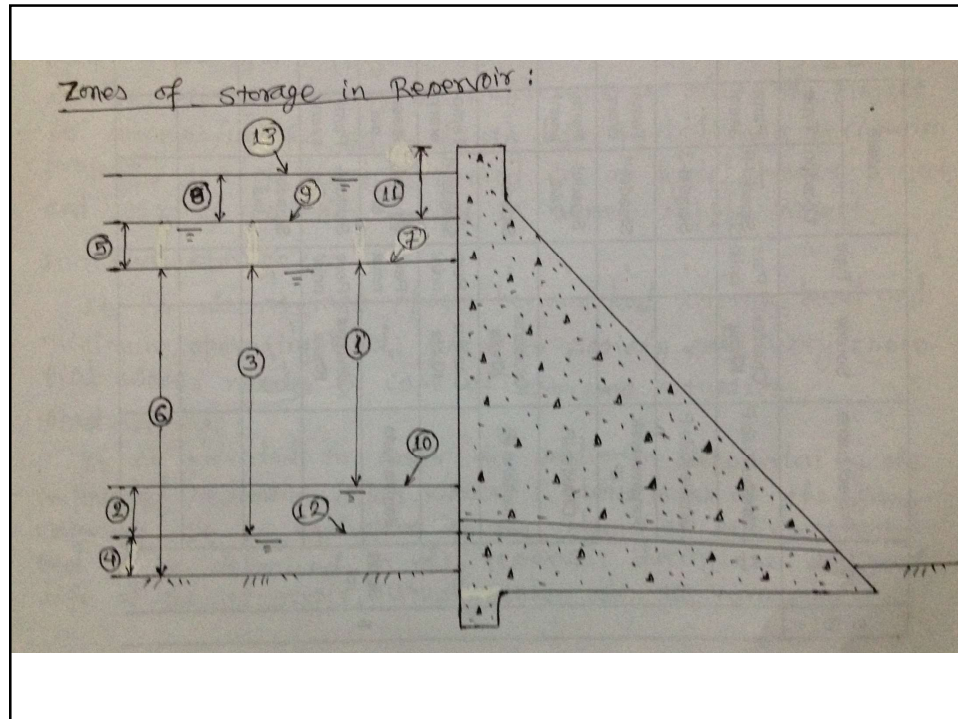 Zones of storage in Reservoir :
13
8
9
11
5
7
3
1
6
10
2
12
4